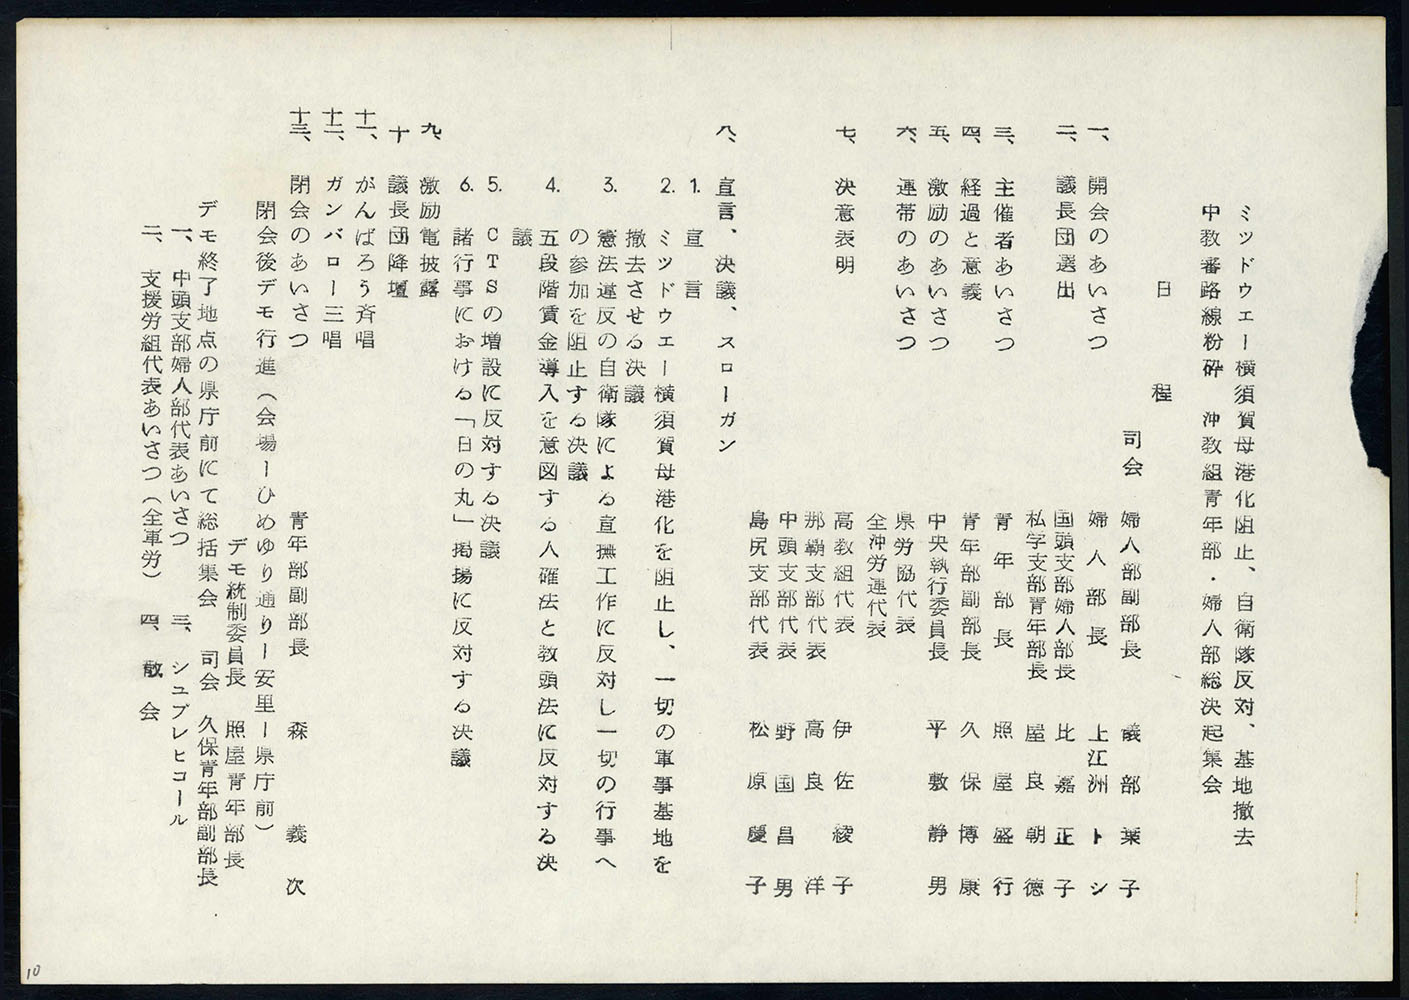 ミツドウエー横須賀母港化阻止、自衛隊反対、基地撤去
中教審路線粉砕 沖教組青年部・婦人部総決起集会
日 程
司会 婦人部副部長 儀部葉子
一、開会のあいさつ 婦人部長 上江洲トシ
二、議長団選出 国頭支部婦人部長 比嘉正子
私学支部青年部長 屋良朝徳
三、主催者あいさつ 青年部長 照屋盛行
四、経過と意義 青年部副部長 久保博康
五、激励のあいさつ 中央執行委員長 平敷静男
六、連帯のあいさつ 県労協代表
全沖労連代表
七、決意表明 高教組代表 伊佐綾子
那覇支部代表 高良洋
中頭支部代表 野国昌男
島尻支部代表 松原慶子
八、宣言、決議、スローガン
1. 宣言
2. ミツドウエー横須賀母港化を阻止し、一切の軍事基地を
撤去させる決議
3. 憲法違反の自衛隊による宣撫工作に反対し一切の行事へ
の参加を阻止する決議
4. 五段階賃金導入を意図する人確法と教頭法に反対する決
議
5. CTSの増設に反対する決議
6. 諸行事における「日の丸」掲揚に反対する決議
九、激励電披露
十 議長団降壇
十一、がんばろう斉唱
十二、ガンバロー三唱
十三、閉会のあいさつ 青年部副部長 森義次
閉会後デモ行進(会場ーひめゆり通りー安里ー県庁前)
デモ統制委員長 照屋青年部長
デモ終了地点の県庁前にて総括集会 司会 久保青年部副部長
一、中頭支部婦人部代表あいさつ 三、シユプレヒコール
二、支援労組代表あいさつ(全軍労) 四、散会
10